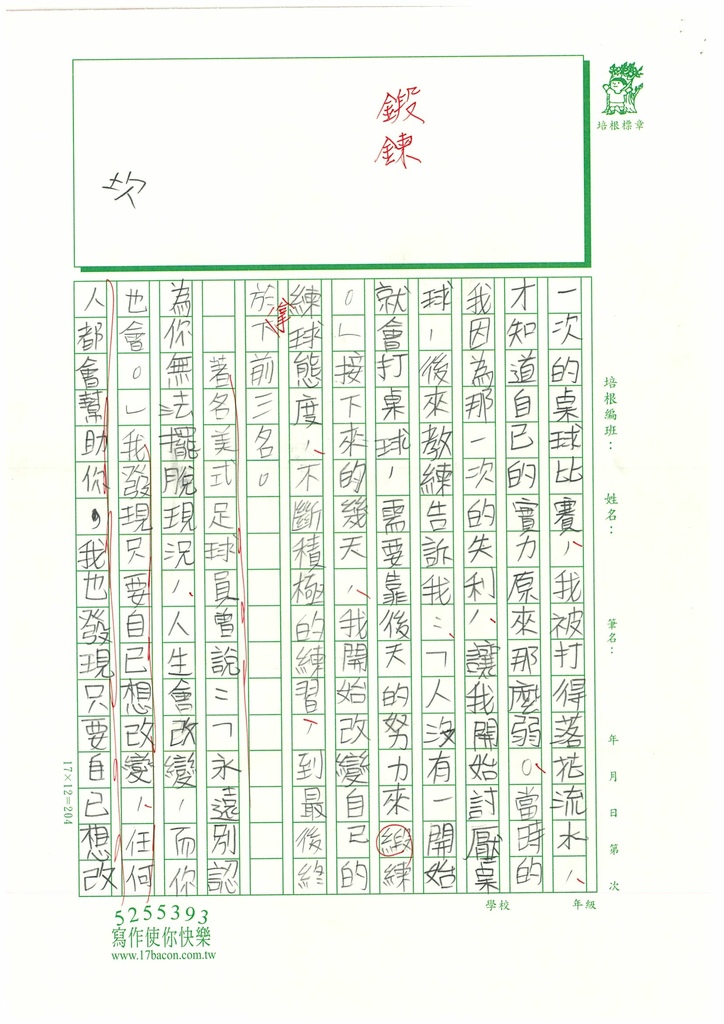 鍛
鍊
次
培根標章
一次的桌球比賽，我被打得落花流水，
才知道自己的實力原來那麼弱。當時的
我因為那一次的失利，讓我開始討厭桌
球，後來教練告訴我：「人沒有一開始
就會打桌球，需要靠後天的努力來緞練
。」接下來的幾天，我開始改變自己的
練球態度，不斷積極的練習，到最後終
於拿下前三名。
著名美式足球員曾說：「永遠別認
為你無法擺脫現況，人生會改變，而你
也會。」我發現只要自己想改變，任何
人都會幫助你，我也發現只要自己想改
培根編班：
姓名：
筆名：
年 月 日 第 次
學校 年級
17×12=204
5255393
寫作使你快樂
www.17bacon.com.tw